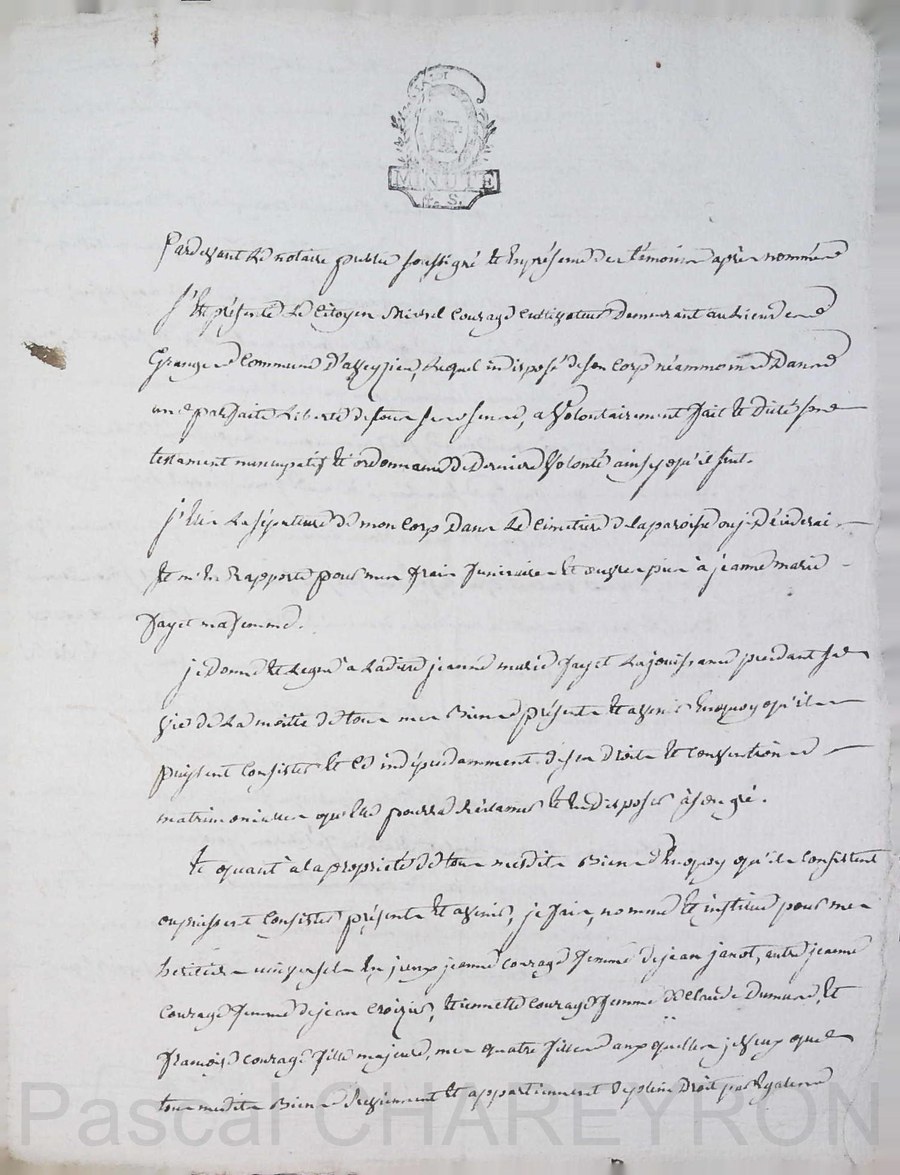 MINUTE
Pardevant Le notaire public soussigné et En présence des témoins après nommés
s'Est présenté Le Citoyen Michel Courage Cultivateur Demeurant au Lieu des
Granges Commune D'aveyzieu, Lequel indisposé de son Corp néammoins Dans
une parfaite Liberté de tous ses sens, a Volontairement fait et dicté son
testament nuncupatif et ordonnance de Derniere Volonté ainsy qu'il suit.
j'Elis La sépulture de mon Corp Dans Le Cimetiere de la paroisse ou je Déciderai
Et m'En Rapporte pour mes frais funeraires Et œuvres pies à jeanne marie
fayet ma femme.
je Donne et Legue a Ladite jeanne marie fayet La jouissance pendant sa
vie de La moitié de tous mes Biens présents Et avenir Enquoy qu'ils
puissent Consister Et Ce indépendamment de ses Droits et Conventions
matrimoniaux qu'Elle pourra Réclamer et En disposer à son gré.
Et quant à la propriété de tous mesdits Biens Enquoy qu'ils Consistent
ou puissent Consister présents Et avenir, je fais, nomme et institue pour mes
heritieres universelles jeanne Courage femme de jean janot, autre jeanne
Courage femme de jean Croizier, Etiennette Courage femme de Claude Dumas, et
françoise Courage fille majeure, mes quatre filles auxquelles je veux que
tous mesdits Biens Deviennent et appartiennent de plein Droit par Egalité
Pascal CHAREYRON